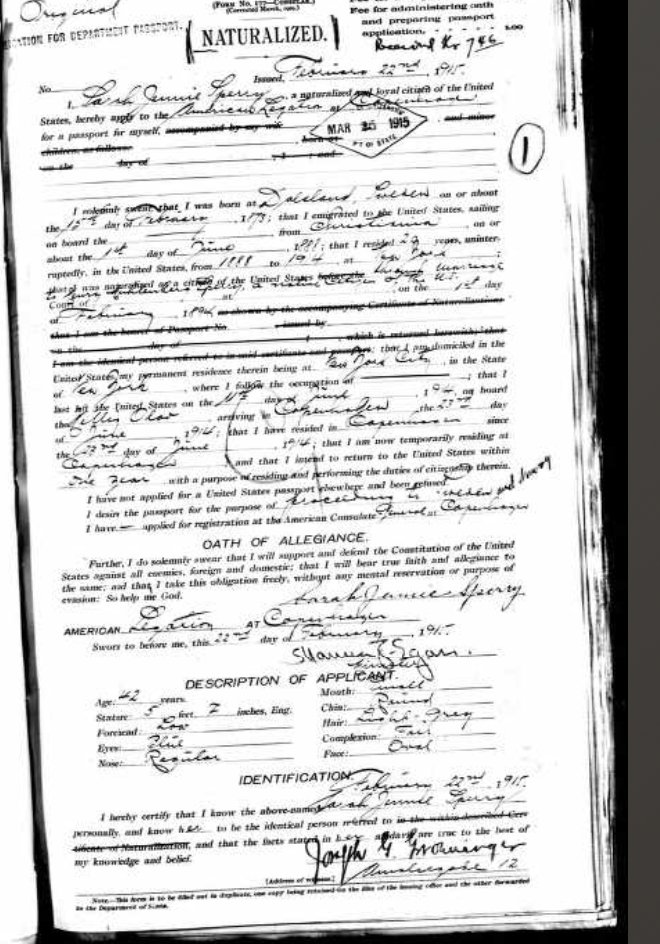 Original
(FORM No. 177—CONSULAR.)
(Corrected March, 1909.)
Fee for administering oath
and preparing passport
application. 1.00
ATION FOR DEPARTMENT PASSPORT.
[NATURALIZED.]
Record No 746
Issued, February 22nd, 1915.
No.
I, Sarah Jennie Sperry, a naturalized and loyal citizen of the United
States, hereby apply to the American Legation at Copenhagen
for a passport for myself, accompanied by my wife, and minor
children, as follows: born at
on the day of , ; and
MAR 25 1915
PT OF STATE
1
I solemnly swear that I was born at Dalsland, Sweden on or about
the 15th day of February, 1873; that I emigrated to the United States, sailing
on board the from Christiania on or
about the 1st day of June, 1888; that I resided years, uninter-
ruptedly, in the United States, from 1888 to 1914, at New York;
that I was naturalized as a citizen of the United States before the through marriage
to Sperry, a native citizen of the U.S.
Court of at , on the 1st day
of February, 1894, as shown by the accompanying Certificate of Naturalization;
that I am the bearer of Passport No. issued by
on the day of , which is returned herewith; that
I am the identical person referred to in said certificate and passport; that I am domiciled in the
United States, my permanent residence therein being at New York City, in the State
of New York, where I follow the occupation of ; that I
last left the United States on the 11th day of June, 1914, on board
the Hellig Olav arriving in Copenhagen, the 23rd day
of June, 1914; that I have resided in Copenhagen since
the 23rd day of June, 1914; that I am now temporarily residing at
Copenhagen, and that I intend to return to the United States within
one year with a purpose of residing and performing the duties of citizenship therein.
I have not applied for a United States passport elsewhere and been refused.
I desire the passport for the purpose of proceeding to Sweden and Norway
I have — applied for registration at the American Consulate General at Copenhagen
OATH OF ALLEGIANCE.
Further, I do solemnly swear that I will support and defend the Constitution of the United
States against all enemies, foreign and domestic; that I will bear true faith and allegiance to
the same; and that I take this obligation freely, without any mental reservation or purpose of
evasion: So help me God.
Sarah Jennie Sperry
AMERICAN Legation AT Copenhagen
Sworn to before me, this 22nd day of February, 1915.
Maurice F. Egan.
Minister
DESCRIPTION OF APPLICANT.
Age: 42 years.
Mouth: small
Stature: 5 feet 7 inches, Eng.
Chin: Round
Forehead: Low
Hair: Light-Grey
Eyes: Blue
Complexion: Fair
Nose: Regular
Face: Oval
IDENTIFICATION.
February 22nd, 1915.
I hereby certify that I know the above-named Sarah Jennie Sperry
personally, and know her to be the identical person referred to in the within-described Cer-
tificate of Naturalization, and that the facts stated in her affidavit are true to the best of
my knowledge and belief.
Joseph G.
12
[Address of witness.]
Note.—This form is to be filled out in duplicate, one copy being retained for the files of the issuing office and the other forwarded
to the Department of State.